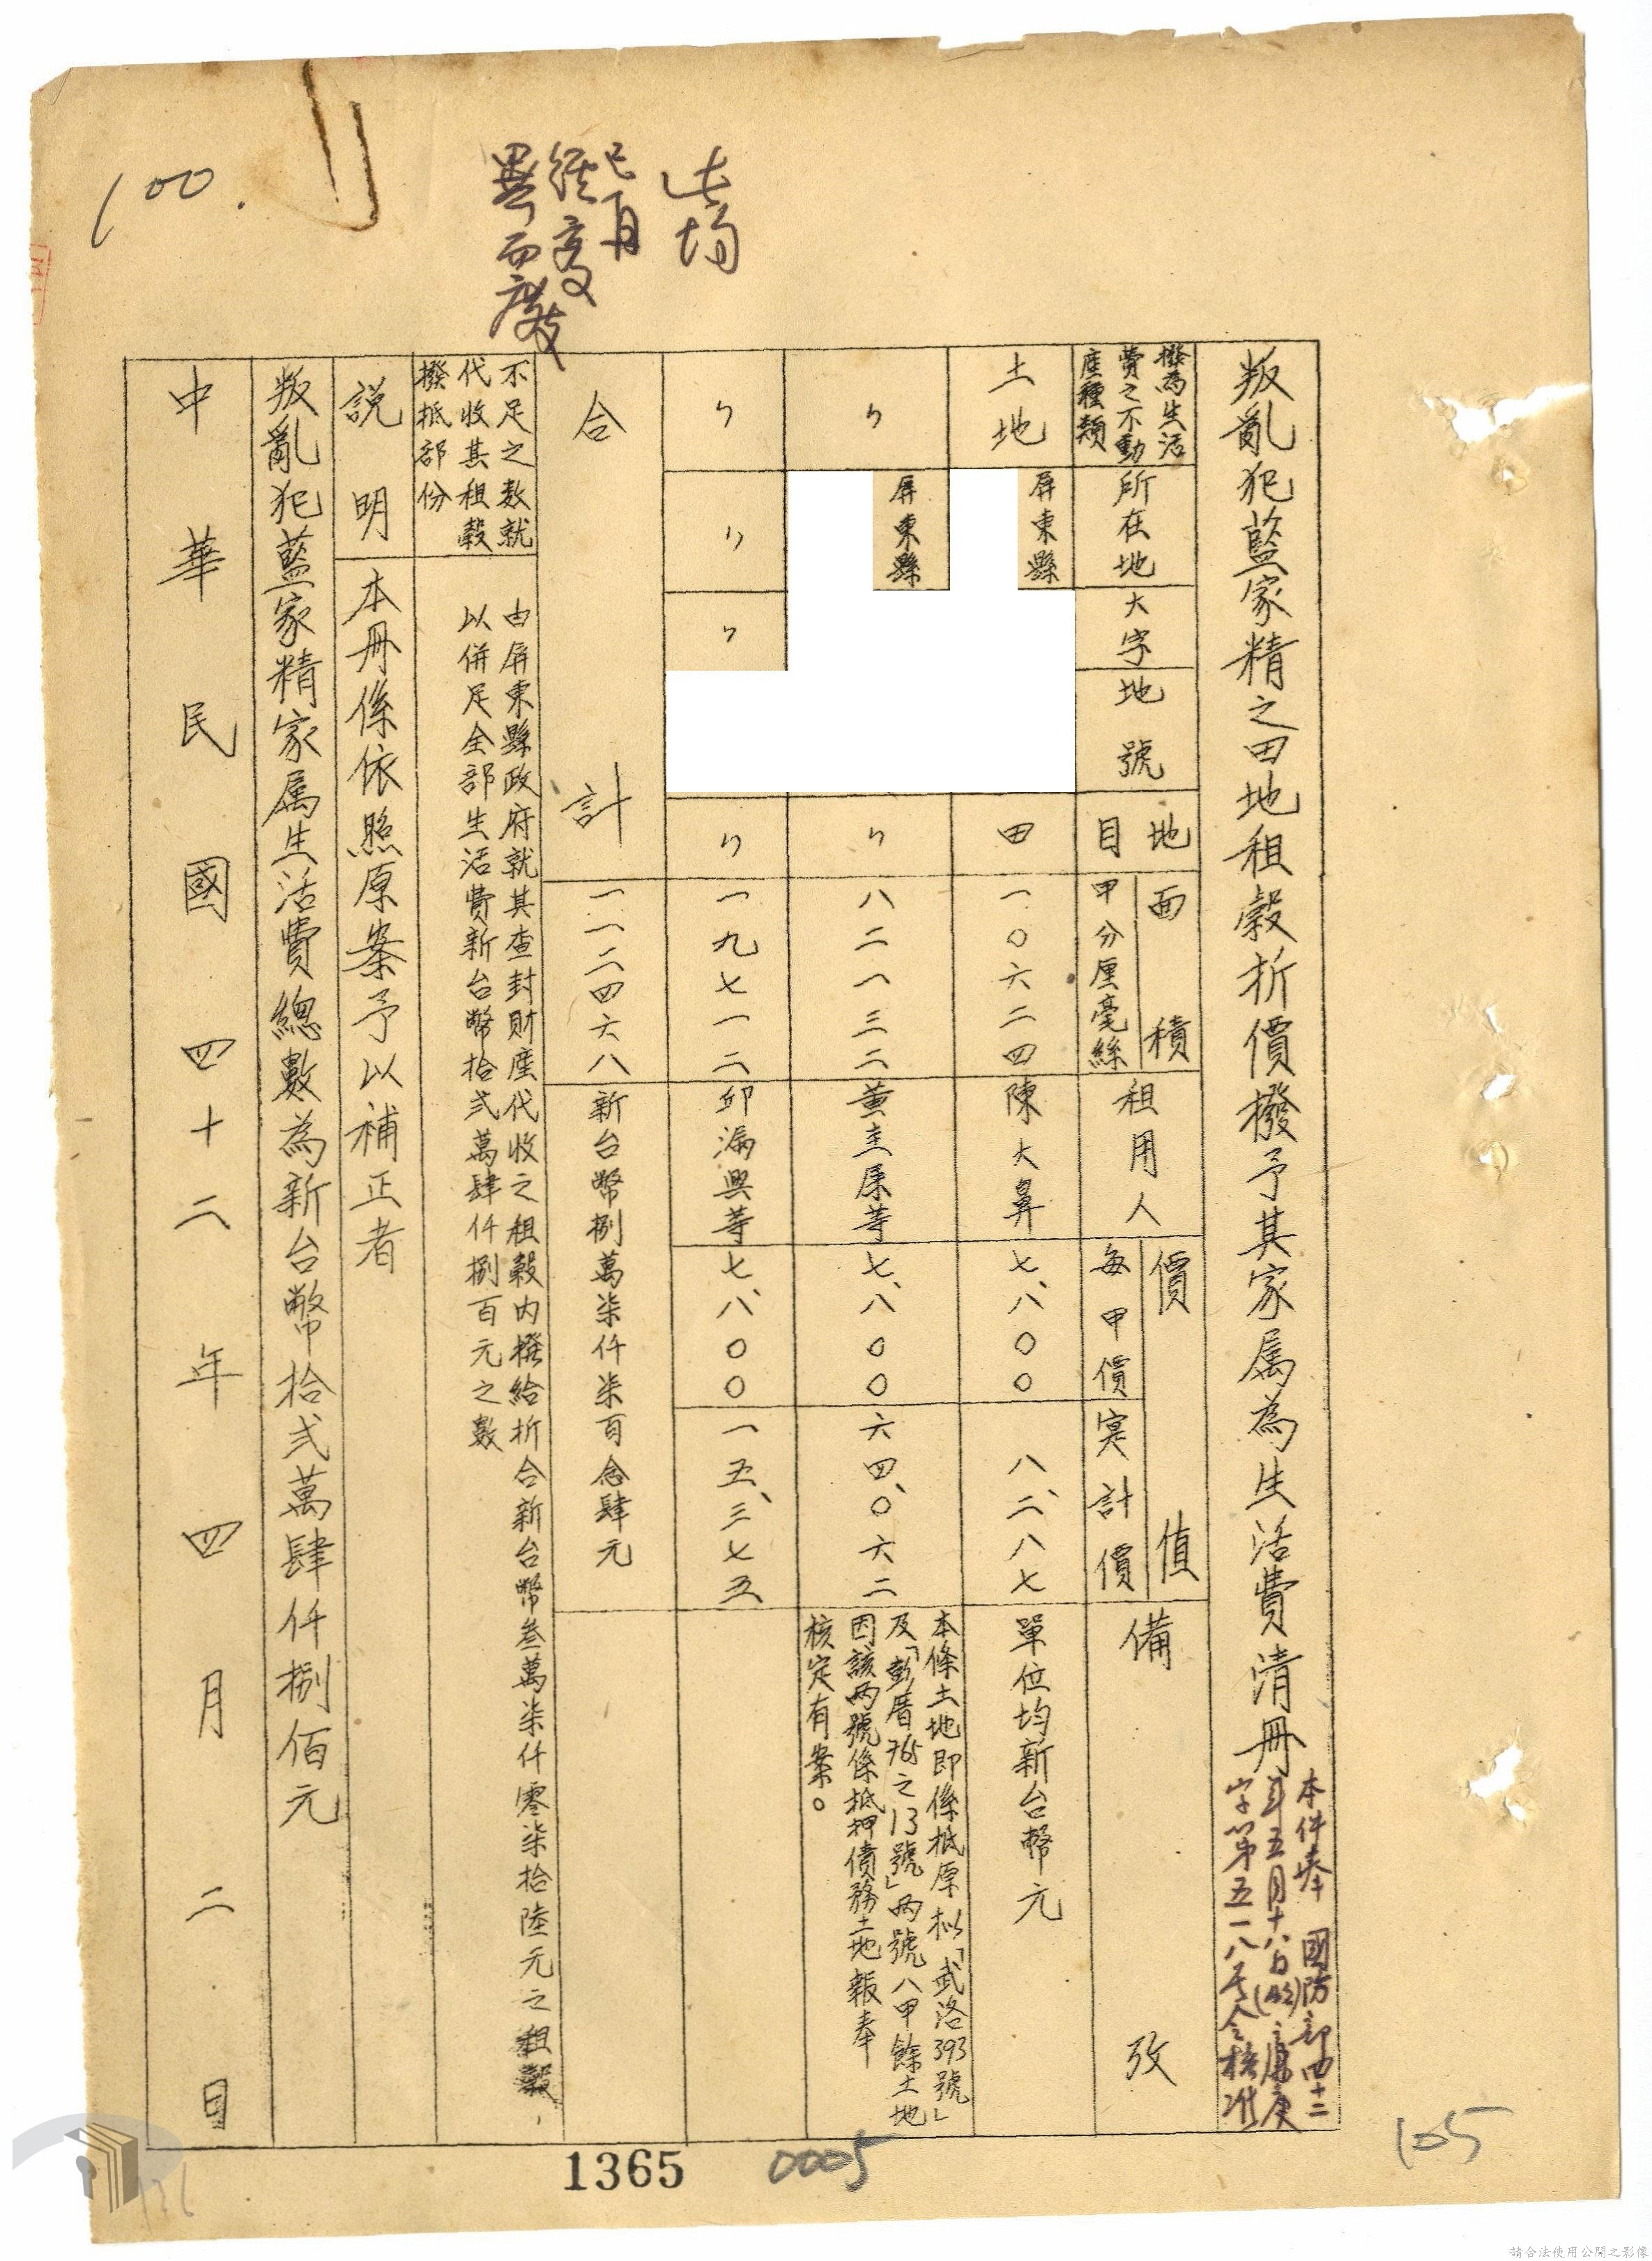 叛亂犯藍家精之田地租穀折價撥予其家属為生活費清冊
本件奉 國防部四十二
年五月十八日
字第五一八號令核准
撥為生活
費之不動
產種類
所在地
大字
地號
地目
面積
甲分厘毫絲
租用人
價值
每甲價
實計價
備攷
土地
屏東縣
田
一〇六二四
陳大鼻
七、八〇〇
八、二八七
單位均新台幣元
〃
屏東縣
〃
八二一三二
黃圭屘等
七、八〇〇
六四、〇六二
本條土地即係抵原拟「武洛393號」
及「彭厝765之13號」兩號八甲餘土地
因該兩號係抵押債務土地報奉
核定有案。
〃
〃
〃
〃
一九七一二
邱漏興等
七、八〇〇
一五、三七五
合計
一一二四六八
新台幣捌萬柒仟柒百念肆元
不足之数就
代收其租穀
撥抵部份
由屏東縣政府就其查封財產代收之租穀內撥給折合新台幣叁萬柒仟零柒拾陸元之租穀，
以併足全部生活費新台幣拾弍萬肆仟捌百元之數
說明
本冊係依照原案予以補正者
叛亂犯藍家精家属生活費總數為新台幣拾弍萬肆仟捌佰元
中華民國四十二年四月二日
100.
1365
0005
105
126
請合法使用公開之影像